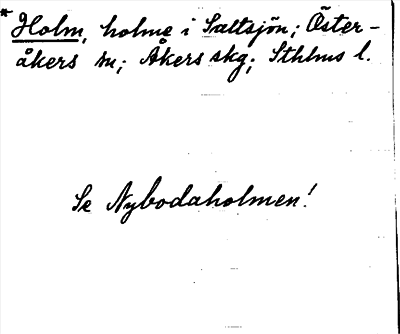 * Holm, holme i Saltsjön; Öster-
åkers sn; Åkers skg; Sthlms l.
Se Nybodaholmen!